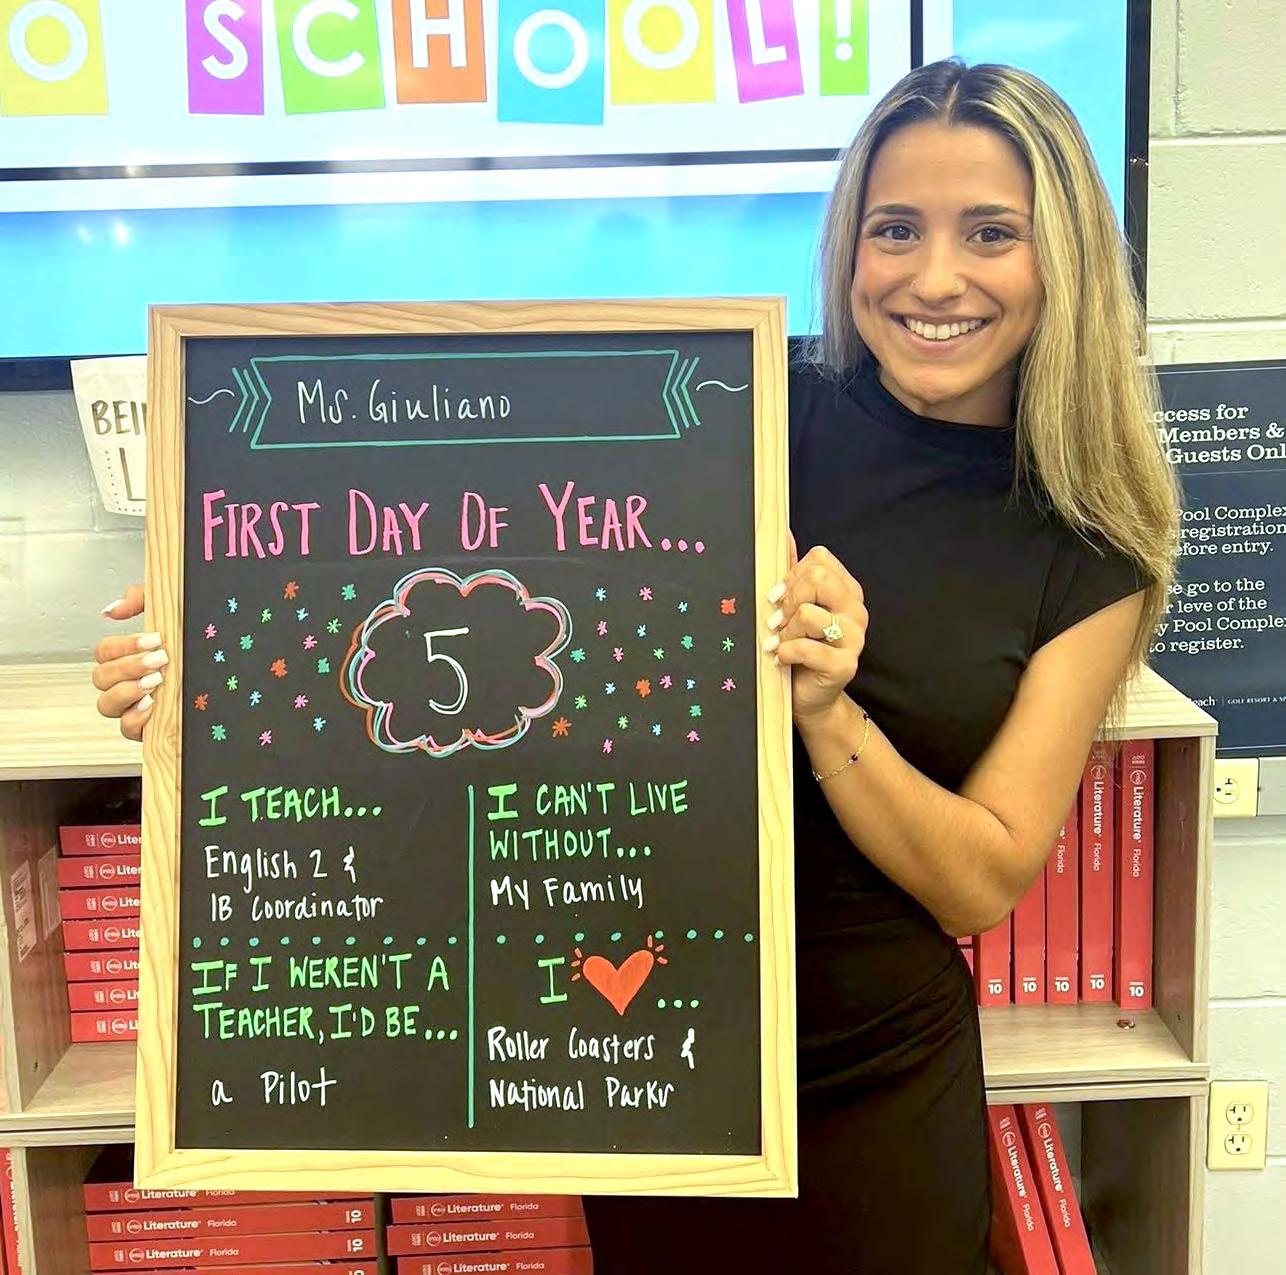 O SCHOOL!
BEI
L
Ms. Giuliano
FIRST DAY OF YEAR...
5
I TEACH...
English 2 &
IB Coordinator
I CAN'T LIVE
WITHOUT...
My Family
IF I WEREN'T A
TEACHER, I'D BE...
a Pilot
I ❤ ...
Roller Coasters &
National Parks
ccess for
Members &
Guests Onl
Pool Complex
registration
efore entry.
se go to the
r leve of the
y Pool Complex
to register.
each GOLF RESORT & SP
Literature Florida
Literature Florida
Literature Florida
10
10
10
10
10
Literature Florida
Literature Florida
Literature Florida
Literature Florida 10
Literature Florida 10
Literature Florida
Literature Florida
Literature Florida